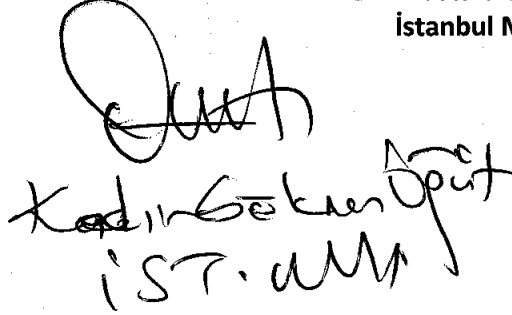 İstanbul M
Kadir Gökmen Öğüt
İST.